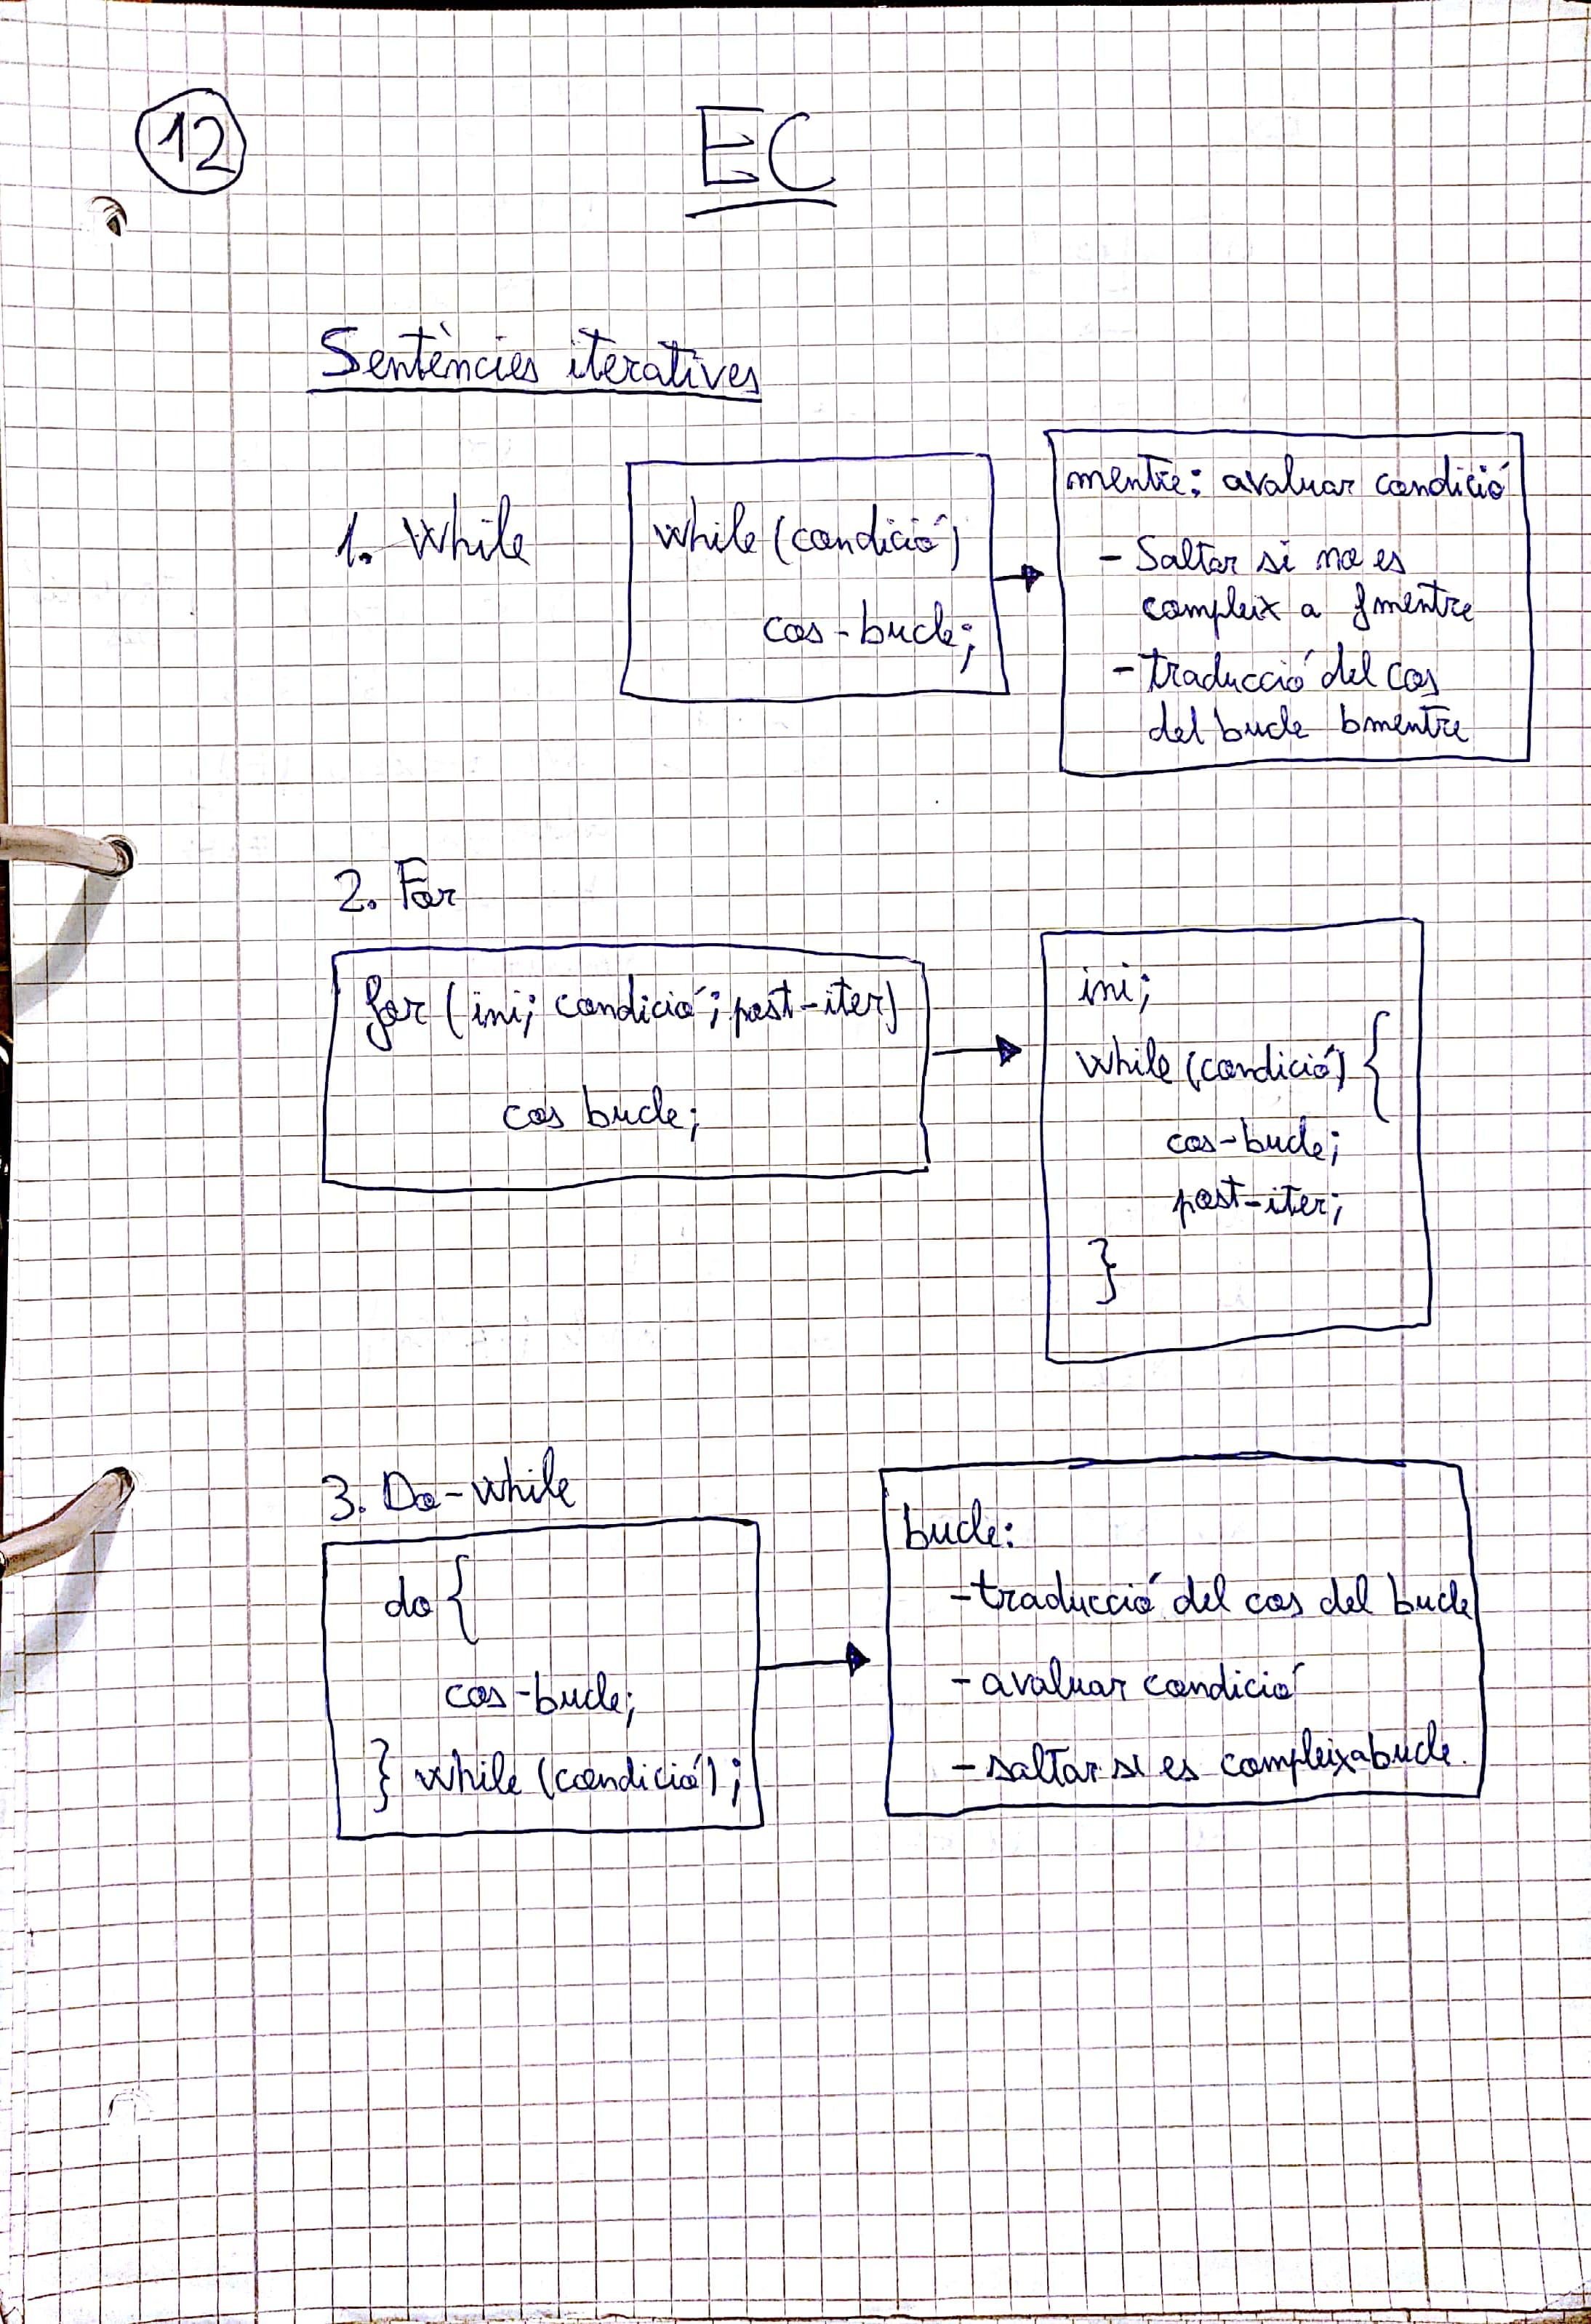 12
EC
Sentències iteratives
1. While
while (condició)
cos-bucle;
mentre: avaluar condició
- Saltar si no es
compleix a fmentre
- traducció del cos
del bucle bmentre
2. For
for (ini; condició; post-iter)
cos bucle;
ini;
while (condició) {
cos-bucle;
post-iter;
}
3. Do-while
do {
cos-bucle;
} while (condició);
bucle:
- traducció del cos del bucle
- avaluar condició
- saltar si es compleix a bucle.